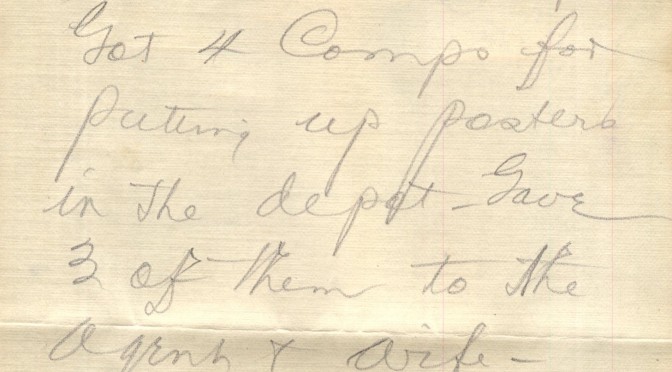 Got 4 Comps for
putting up posters
in the depot - Gave
3 of them to the
Agent & wife -